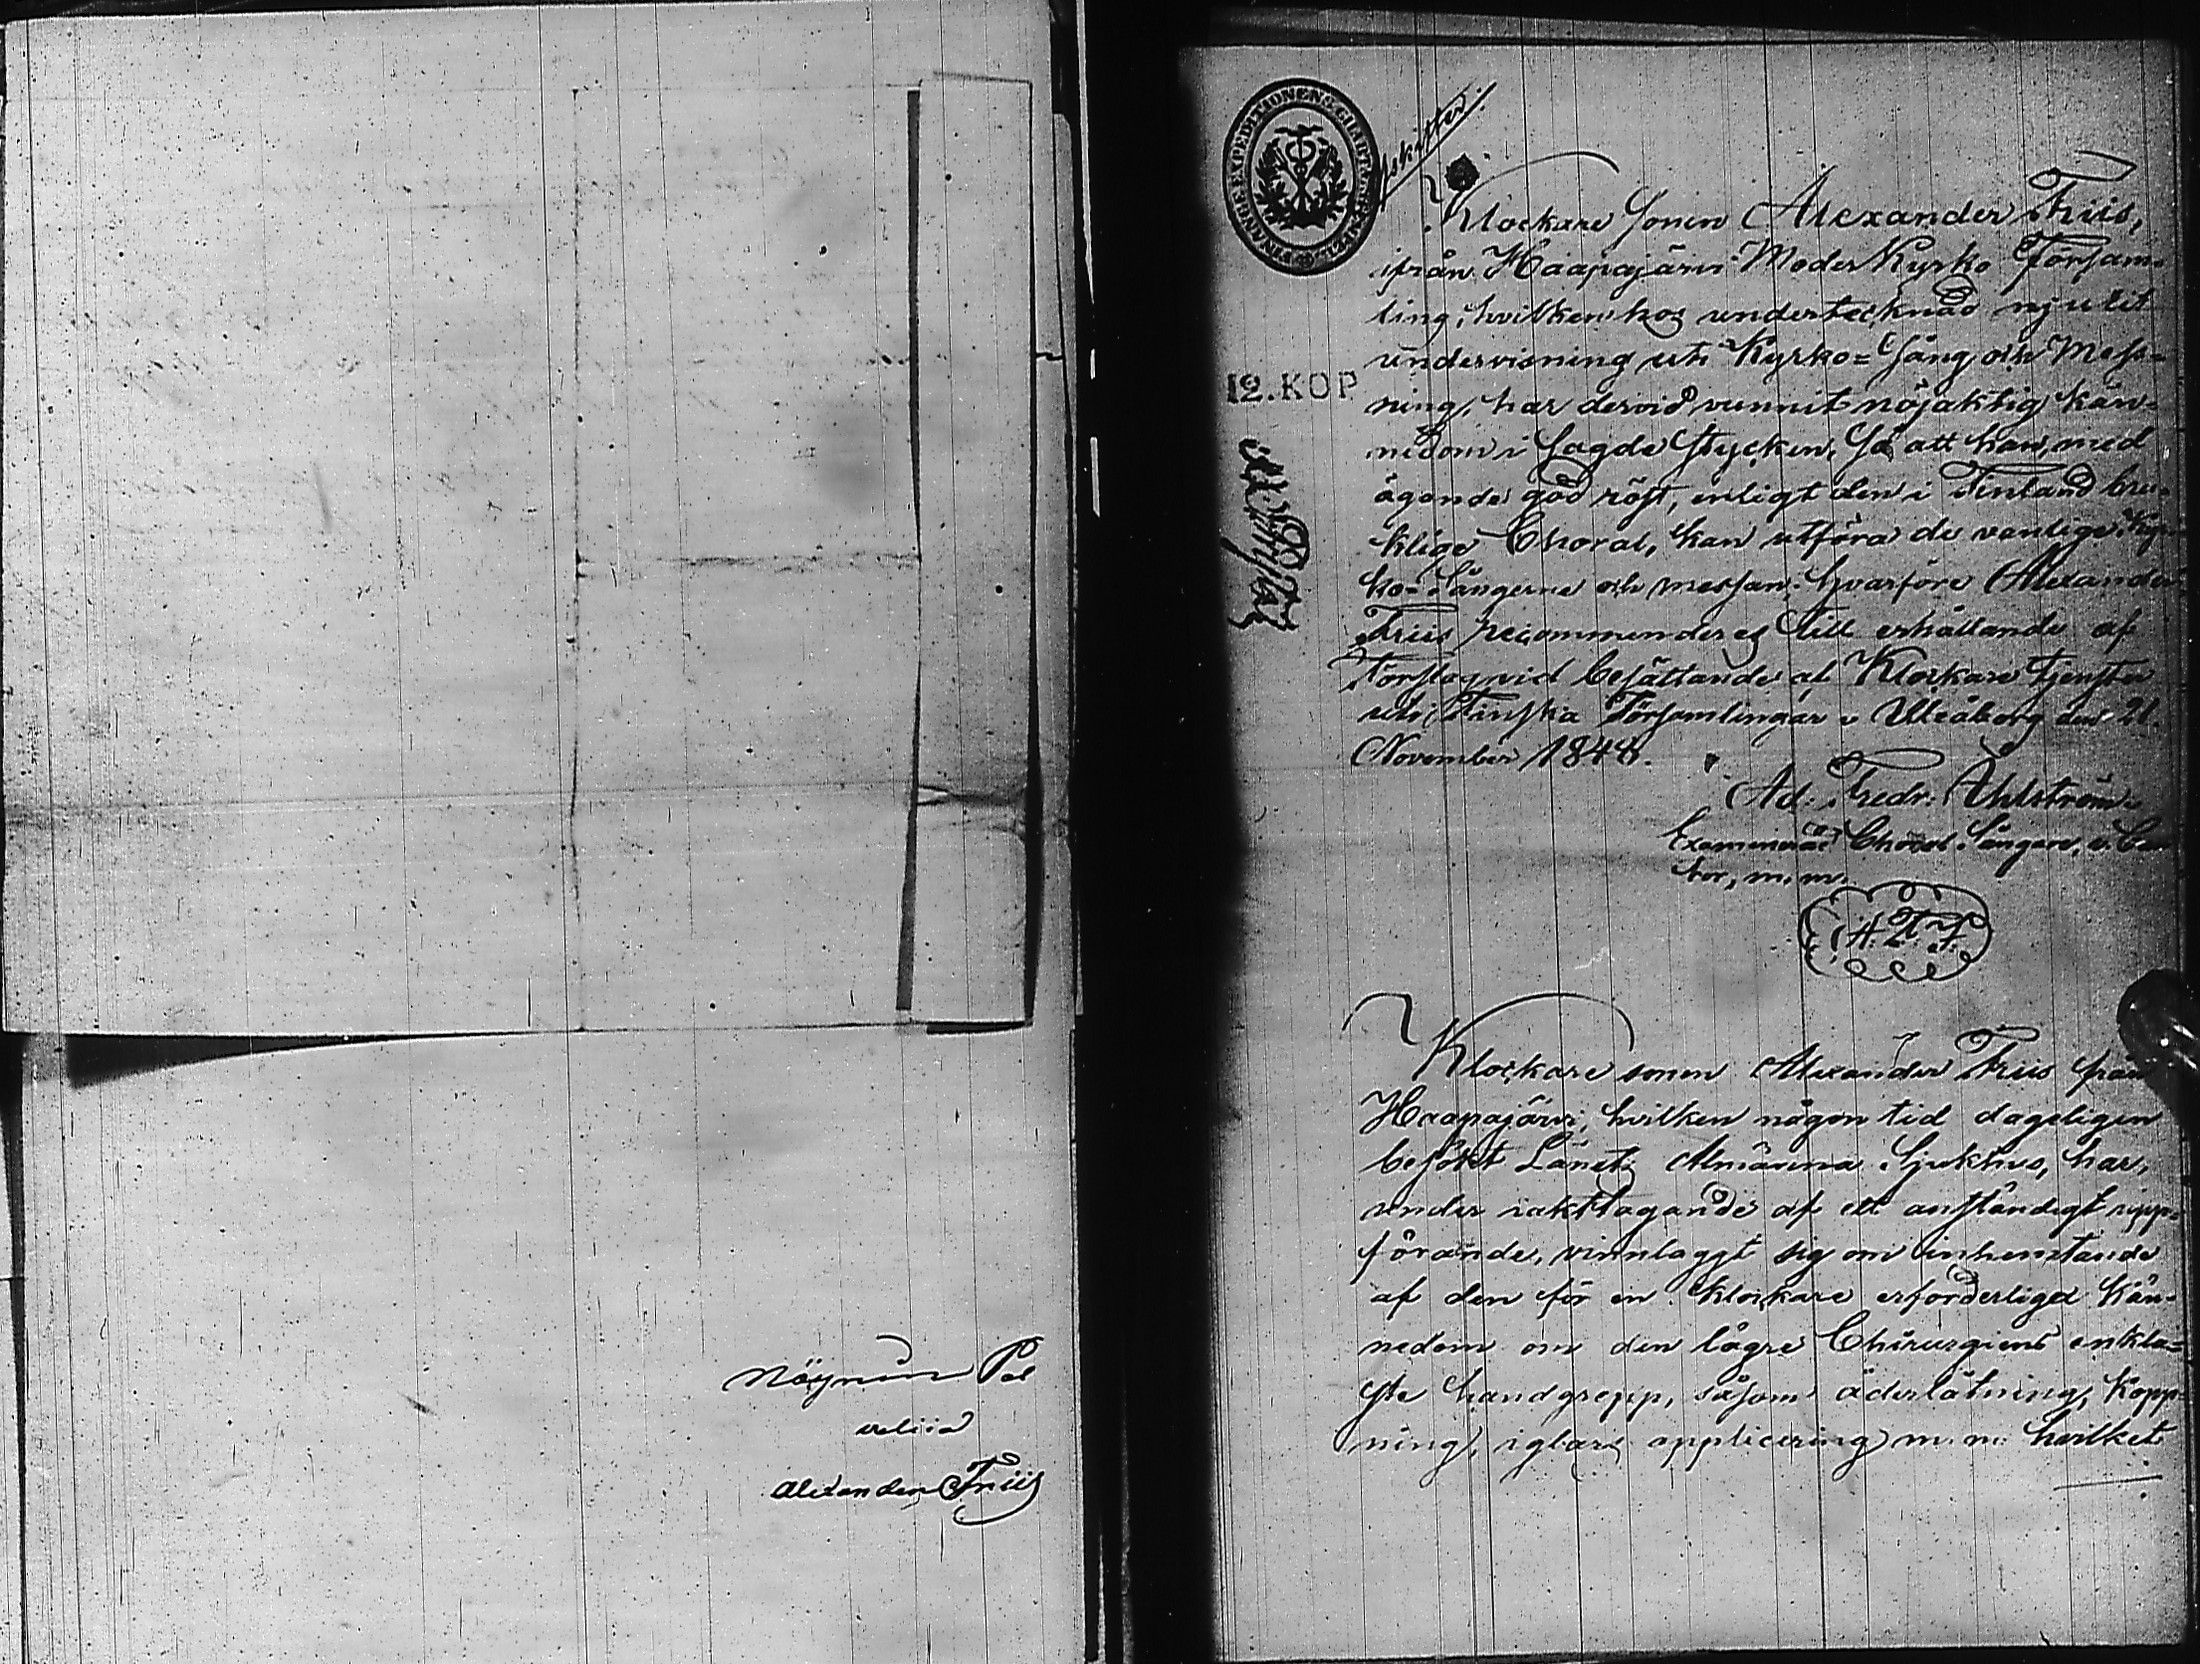 Nöyrin Pal
veliia
Alexander Friis
FINANCE EXPEDITIONENS CHARTÆ
Afskrifter.
12. KOP
Klockare Sonen Alexander Friis,
ifrån Haapajärvi Moder Kyrko Försam-
ling, hvilken hos undertecknad njutit
undervisning uti Kyrko=Sång och Mess=
ning, har dervid vunnit nöjaktig kän=
nedom i sagde stycken, så att han, med
ägande god röst, enligt den i Finland bru-
klige Choral, kan utföra de vanlige Kyr-
ko-Sångerne och messan; hvarföre Alexander
Friis recommenderes till erhållande af
Förslag vid besättande af Klockare tjenster
uti Finska Församlingar. Uleåborg den 21.
November 1848.
Ad: Fredr: Uhlström
Examinerad Choral Sångare, v. Can
tor, m. m.
Klockare sonen Alexander Friis från
Haapajärvi, hvilken någon tid dageligen
besökt Länets Almänna Sjukhus, har,
under iakttagande af ett anständigt upp=
förande, vinnlaggt sig om inhemtande
af den för en klockare erforderliga kän-
nedom om den lägre Chirurgiens enkla=
ste handgrepp, såsom åderlåtning, kopp=
ning, iglars applicering m. m. hvilket